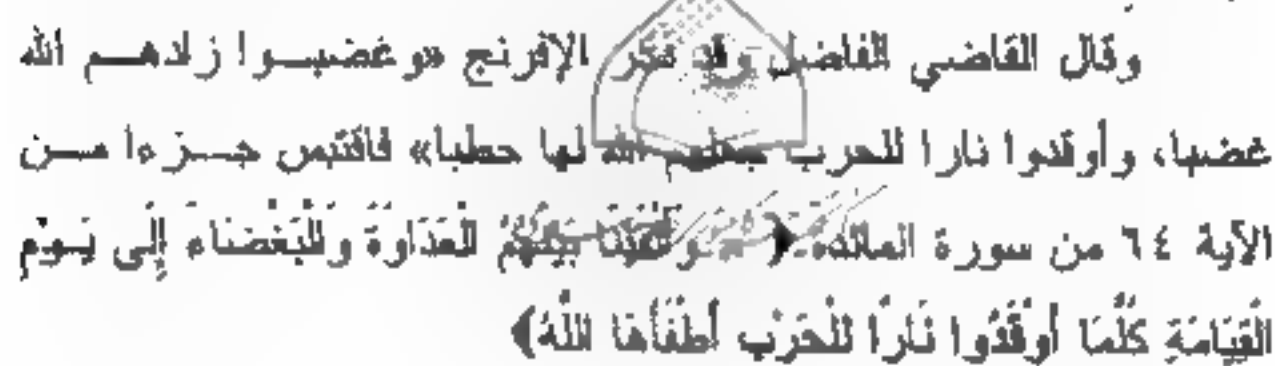 وقال القاضي الفاضل وقد ذكر الإفرنج «وغضبوا زادهم الله
غضبا، وأوقدوا نارا للحرب جعلهم الله لها حطبا» فاقتبس جزءا من
الآية ٦٤ من سورة المائدة ﴿وَأَلْقَيْنَا بَيْنَهُمُ الْعَدَاوَةَ وَالْبَغْضَاءَ إِلَى يَوْمِ
الْقِيَامَةِ كُلَّمَا أَوْقَدُوا نَارًا لِلْحَرْبِ أَطْفَأَهَا اللَّهُ﴾